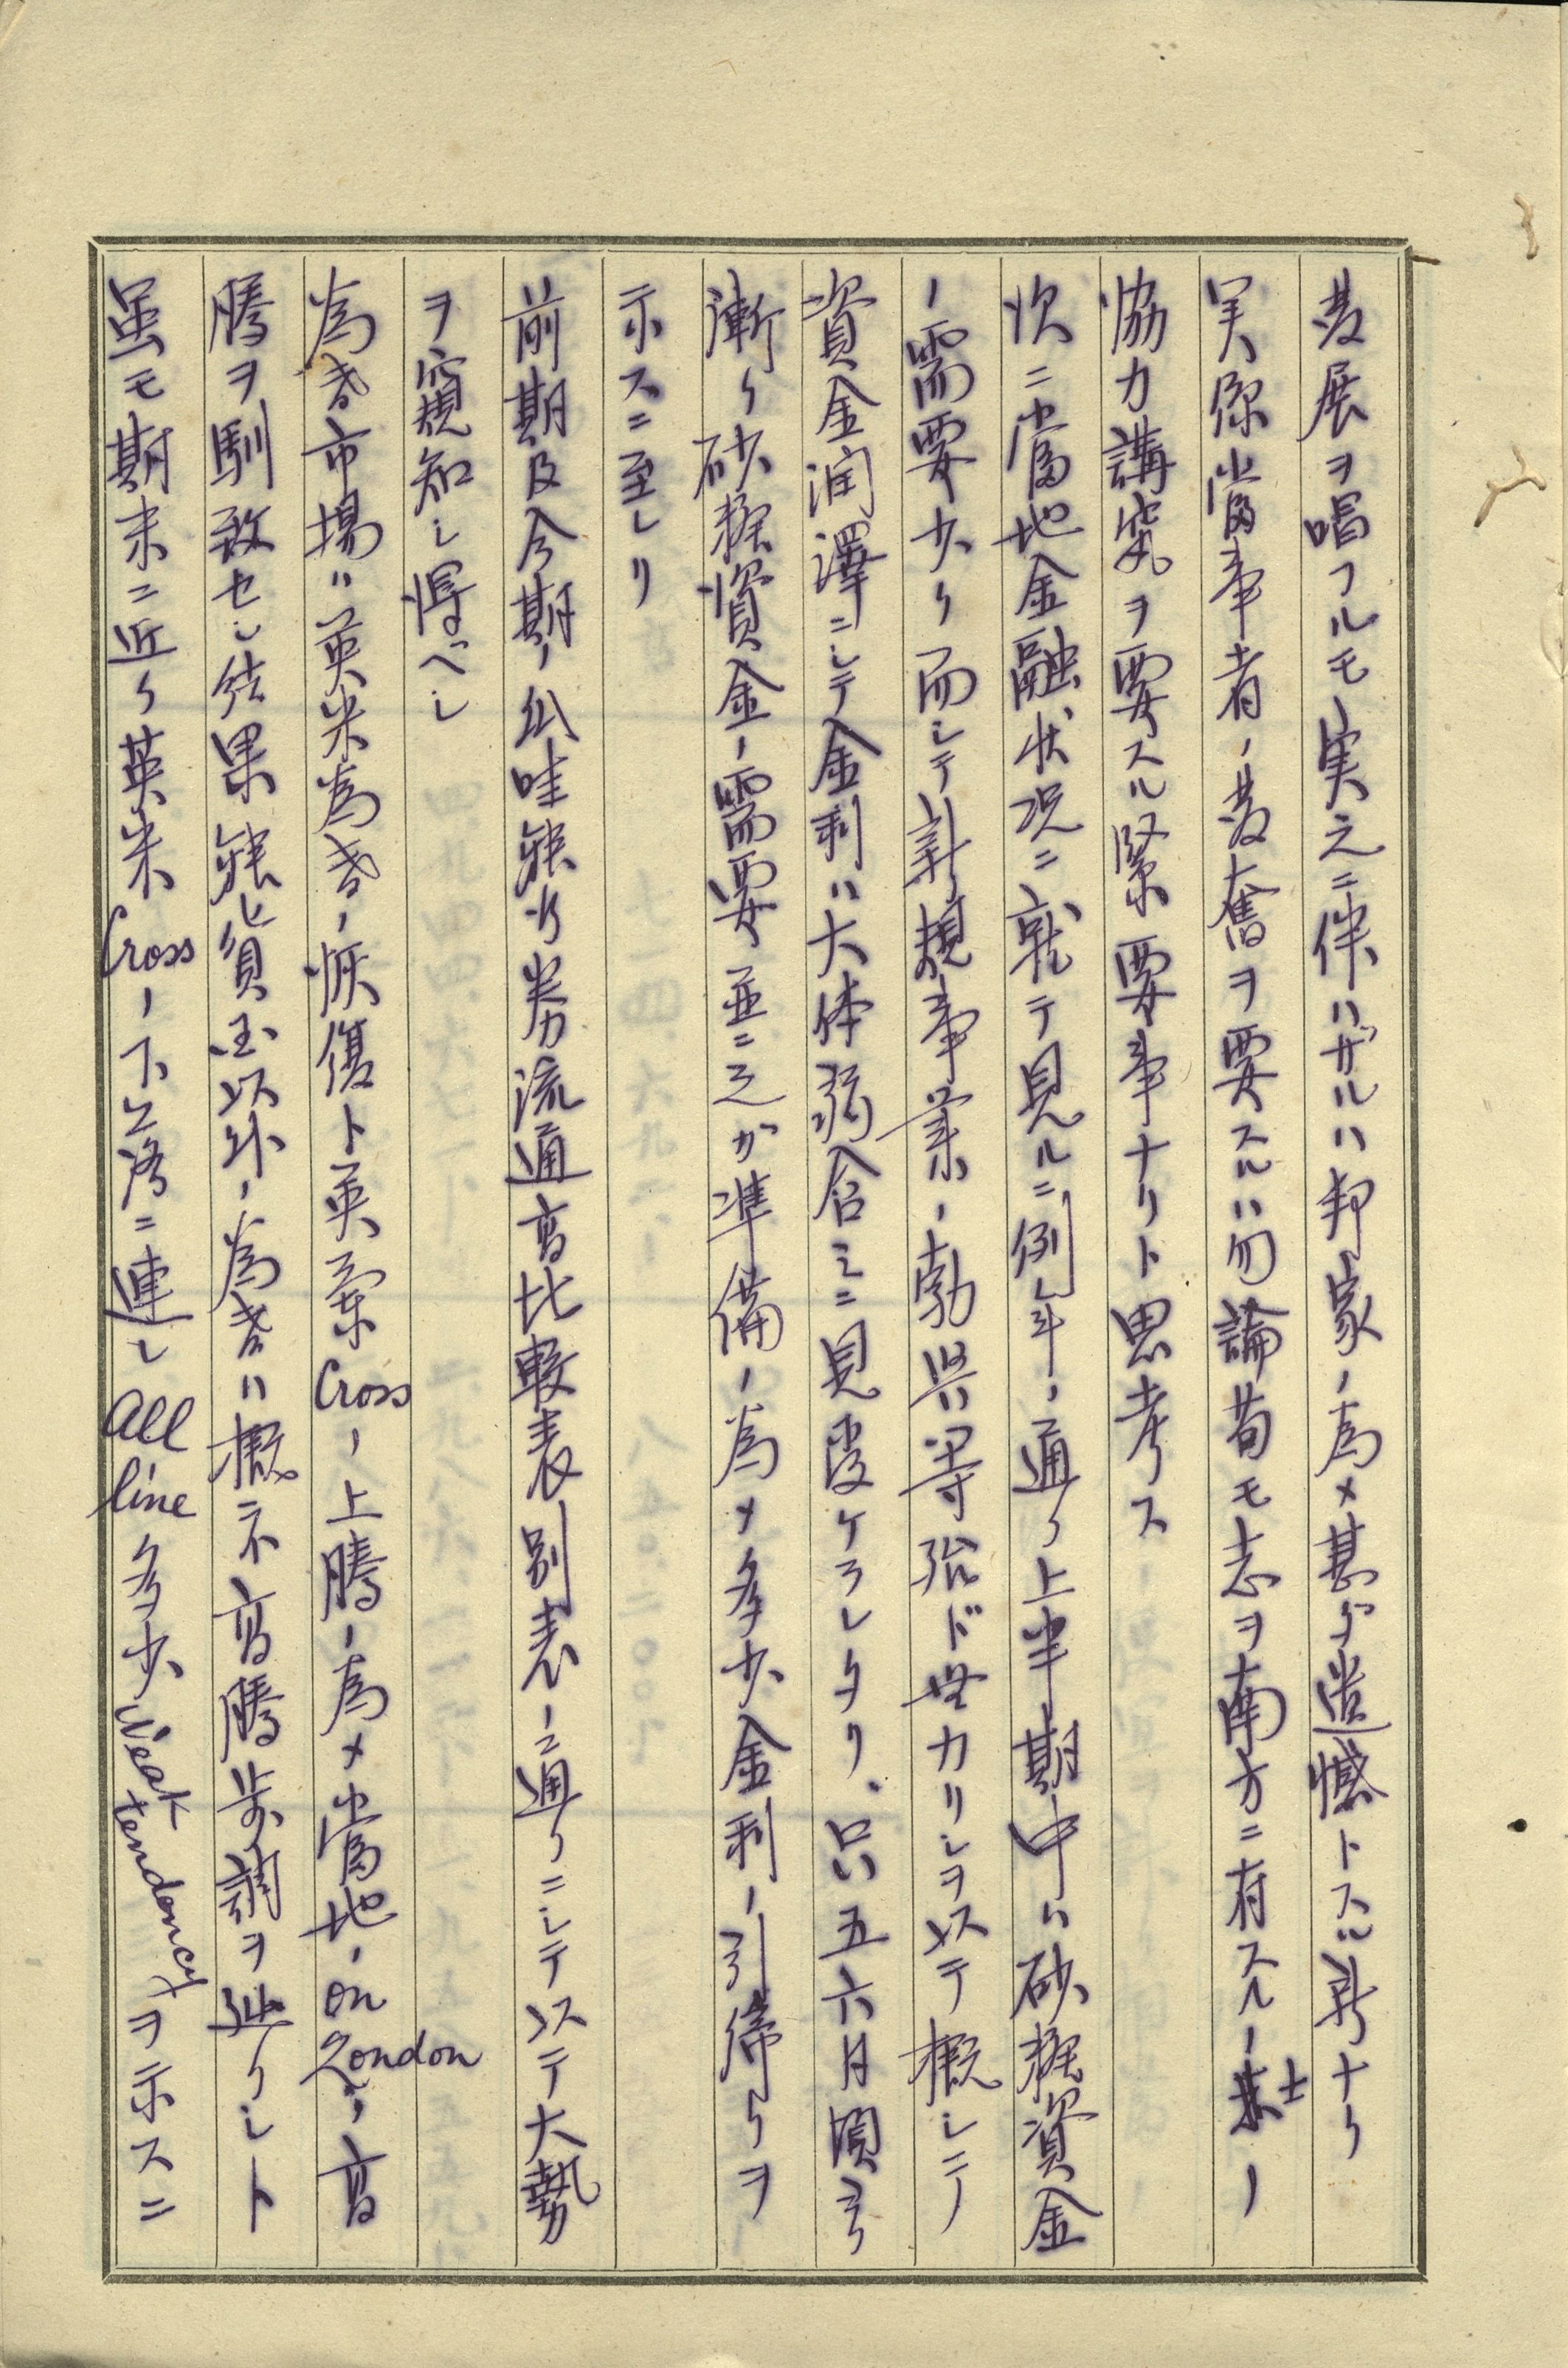 發展ヲ唱フルモ実之ニ伴ハザルハ邦家ノ為メ甚ダ遺憾トスル所ナリ
実際當事者ノ發奮ヲ要スルハ勿論苟モ志ヲ南方ニ有スルノ士ノ
協力講究ヲ要スル緊要事ナリト思考ス
次ニ當地金融状況ニ就テ見ルニ例年ノ通リ上半期中ハ砂糖資金
ノ需要少ク而シテ新規事業ノ勃興等殆ド無カリシヲ以テ概シテ
資金潤澤ニシテ金利ハ大体弱含ミニ見受ケラレタリ、只五六月頃ヨリ
漸ク砂糖資金ノ需要並ニ之ガ準備ノ為メ多少金利ノ引締リヲ
示スニ至レリ
前期及今期ノ爪哇銀行券流通高比較表別表ノ通リニシテ以テ大勢
ヲ窺知シ得ベシ
為替市場ハ英米為替ノ恢復ト英蘭Crossノ上騰ノ為メ當地ノon Londonノ高
騰ヲ馴致セシ結果銀貨国以外ノ為替ハ概ネ高騰歩調ヲ辿リシト
虽モ期末ニ近ク英米Crossノ下落ニ連レall line多少weak tendencyヲ示スニ